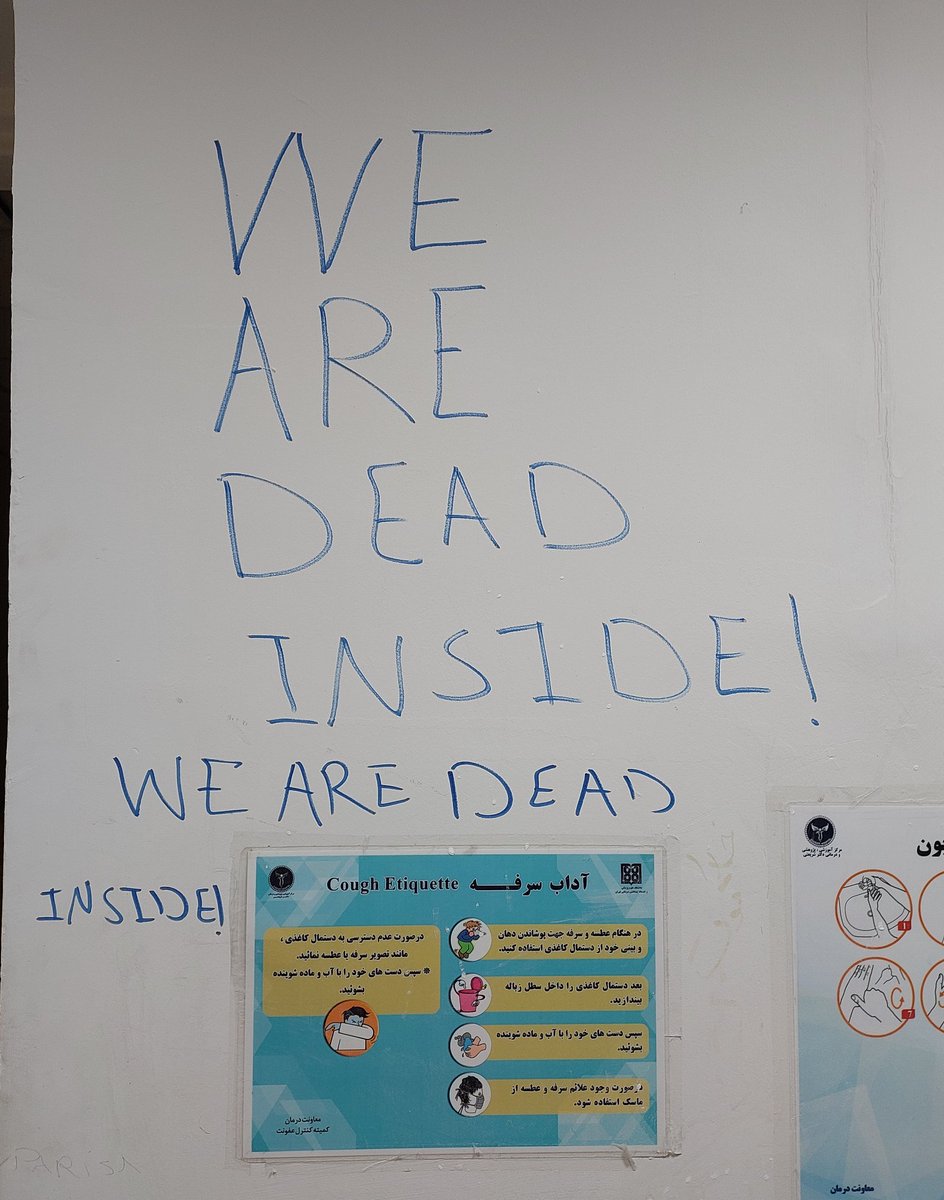 WE
ARE
DEAD
INSIDE!
WE ARE DEAD
INSIDE!
آداب سرفـــه Cough Etiquette
در هنگام عطسه و سرفه جهت پوشاندن دهان
و بینی خود از دستمال کاغذی استفاده کنید.
بعد دستمال کاغذی را داخل سطل زباله
بیندازید.
سپس دست های خود را با آب و ماده شوینده
بشوئید.
درصورت وجود علائم سرفه و عطسه از
ماسک استفاده شود.
درصورت عدم دسترسی به دستمال کاغذی ،
مانند تصویر سرفه یا عطسه نمائید.
* سپس دست های خود را با آب و ماده شوینده
بشوئید.
معاونت درمان
کمیته کنترل عفونت
مرکز آموزشی، پژوهشی
و درمانی دکتر شریعتی
1
2
معاونت درمان
PARISA